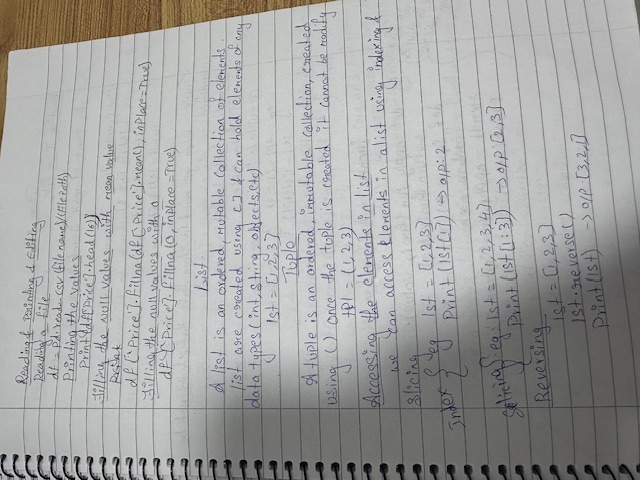 Reading & Pointing & Editing
Reading a file
df = pd.read_csv(file name)/(file path)
Printing the values
Print(df[Price].head(15))
Filling the null values with mean value
Print
df['Price'].fillna(df['Price'].mean(), inplace=True)
Filling the null values with 0
df['Price'].fillna(0, inplace=True)
List
A list is an ordered, mutable collection of elements.
list are created using [] & can hold elements of any
data types (int, string, objects, etc)
lst = [1,2,3]
Tuple
A tuple is an ordered, immutable collection, created
using () once the tuple is created it cannot be modify
tpl = (1,2,3)
Accessing the elements in list
we can access elements in a list using indexing &
slicing
Index { eg lst = [1,2,3]
Print(lst[1]) → o/p: 2
Slicing { eg: lst = [1,2,3,4]
Print(lst[1:3]) → o/p [2,3]
Reversing
lst = [1,2,3]
lst.reverse()
Print(lst) → o/p [3,2,1]